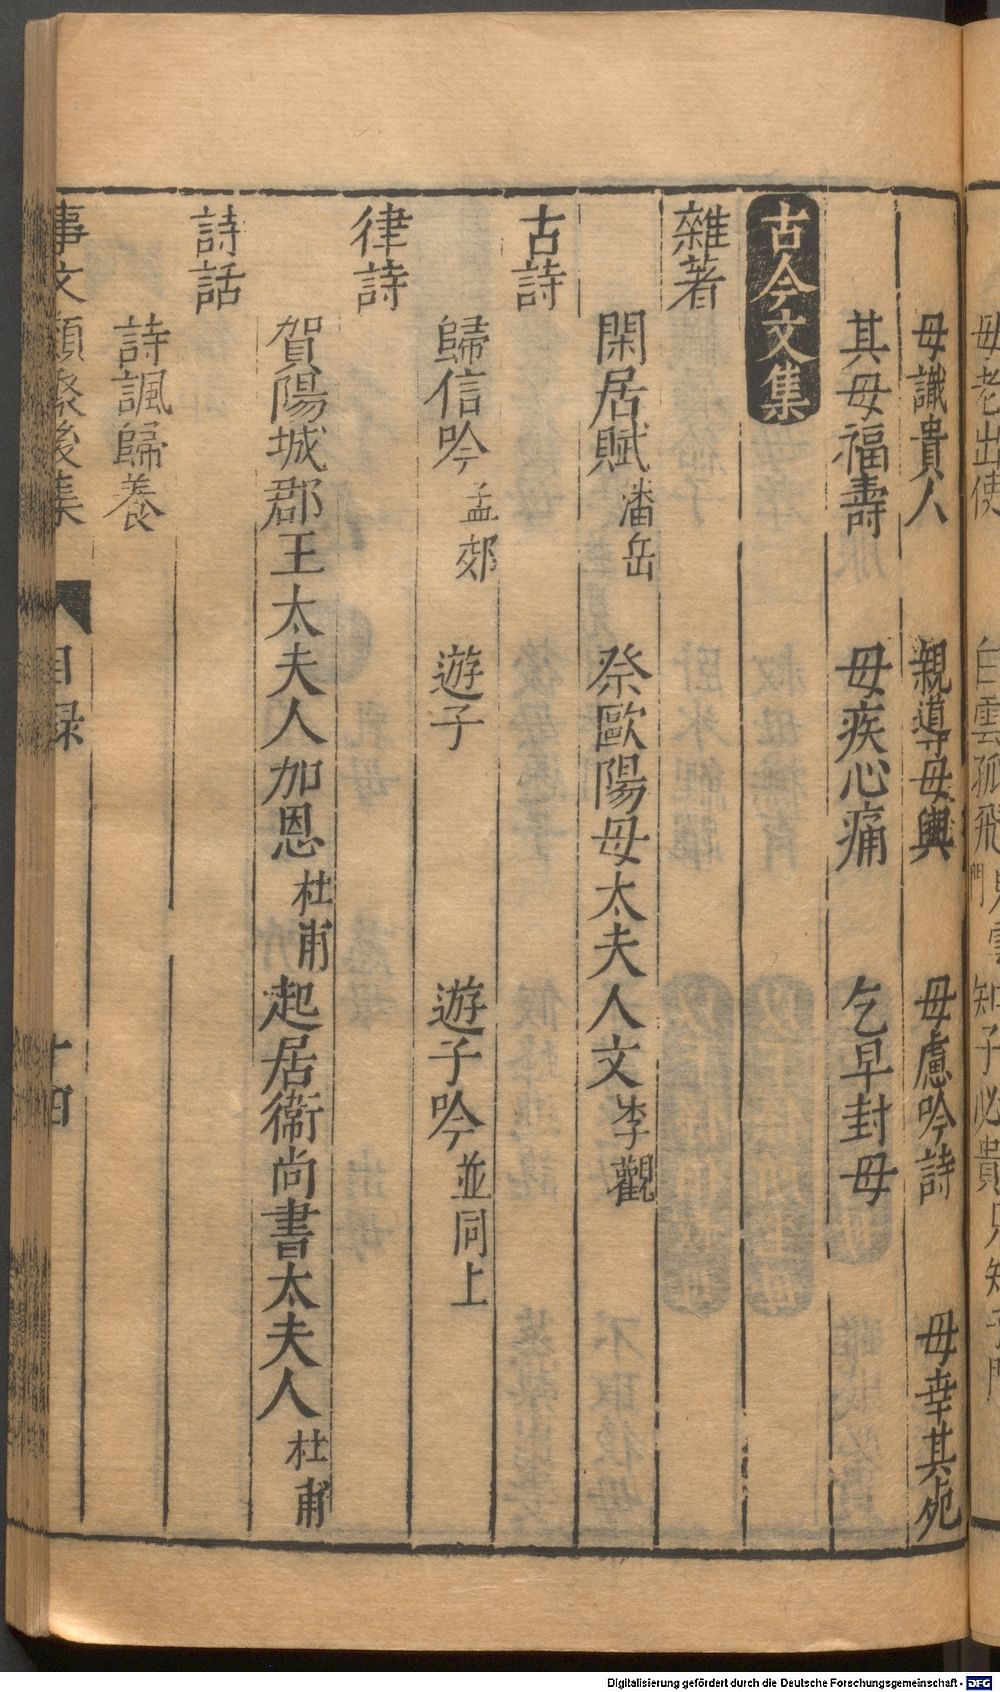 母識貴人　親導母輿　母慮吟詩　母幸其宛
其母福壽　母疾心痛　乞早封母
古今文集
雜著
閑居賦 潘岳　祭歐陽母太夫人文 李觀
古詩
歸信吟 孟郊　遊子　遊子吟 並同上
律詩
賀陽城郡王太夫人加恩 杜甫　起居衛尚書太夫人 杜甫
詩話
詩諷歸養
事文類聚後集　目録　十四
Digitalisierung gefördert durch die Deutsche Forschungsgemeinschaft - DFG